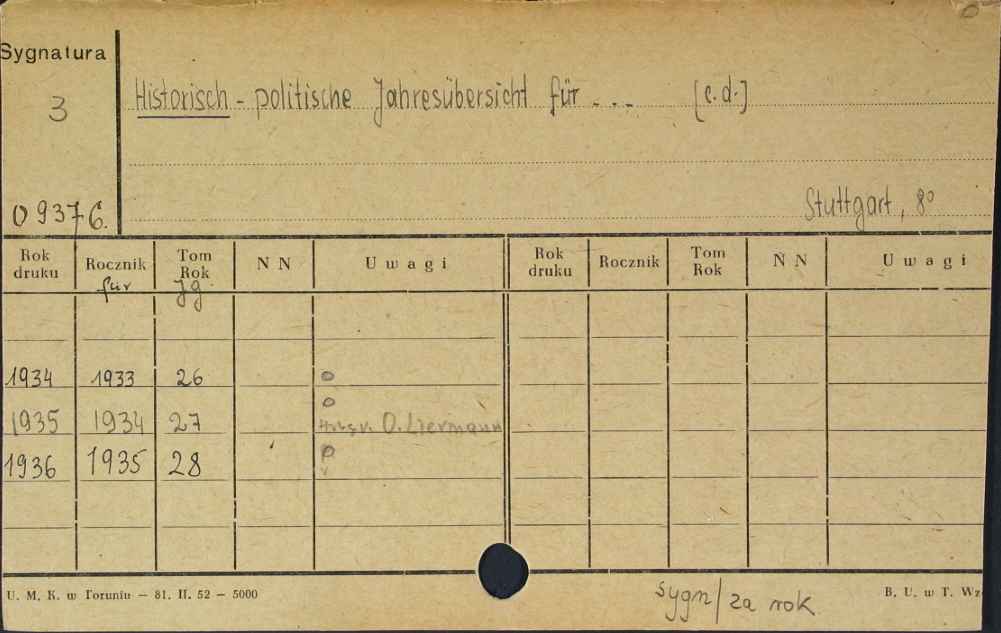 Sygnatura
3
Historisch - politische Jahresübersicht für ... [c.d.]
09376.
Stuttgart, 8°
Rok druku Rocznik Tom Rok N N Uwagi Rok druku Rocznik Tom Rok N N Uwagi
für Jg.
1934 1933 26 o
o
1935 1934 27 O. Liermann
1936 1935 28 o
U. M. K. w Toruniu — 81. II. 52 — 5000
sygn/za rok
B. U. w T. Wz